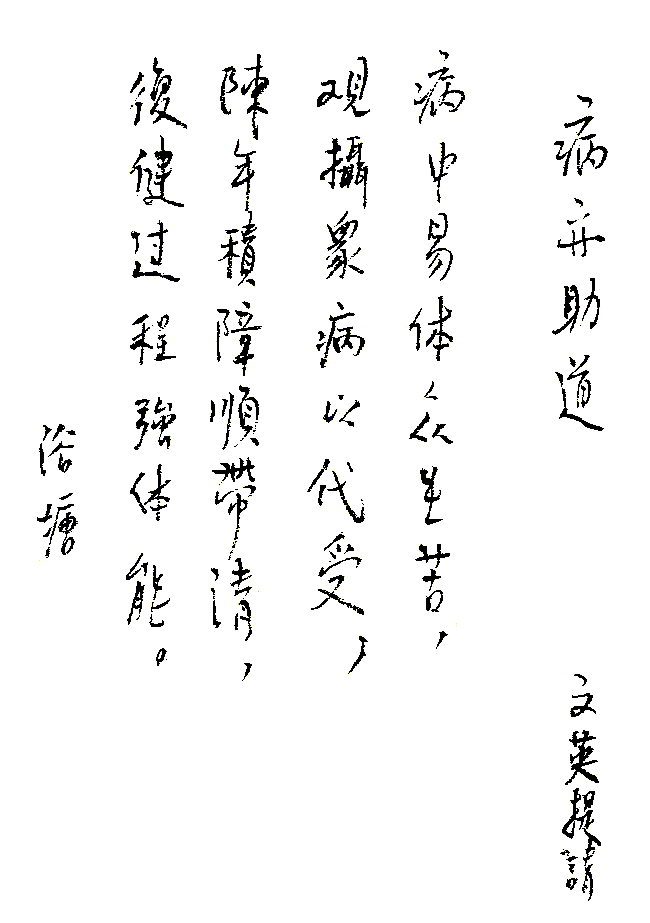 病亦助道
文英提請
病中易体众生苦，
观攝眾病以代受，
陳年積障順帶清，
復健过程強体能。
浴塘